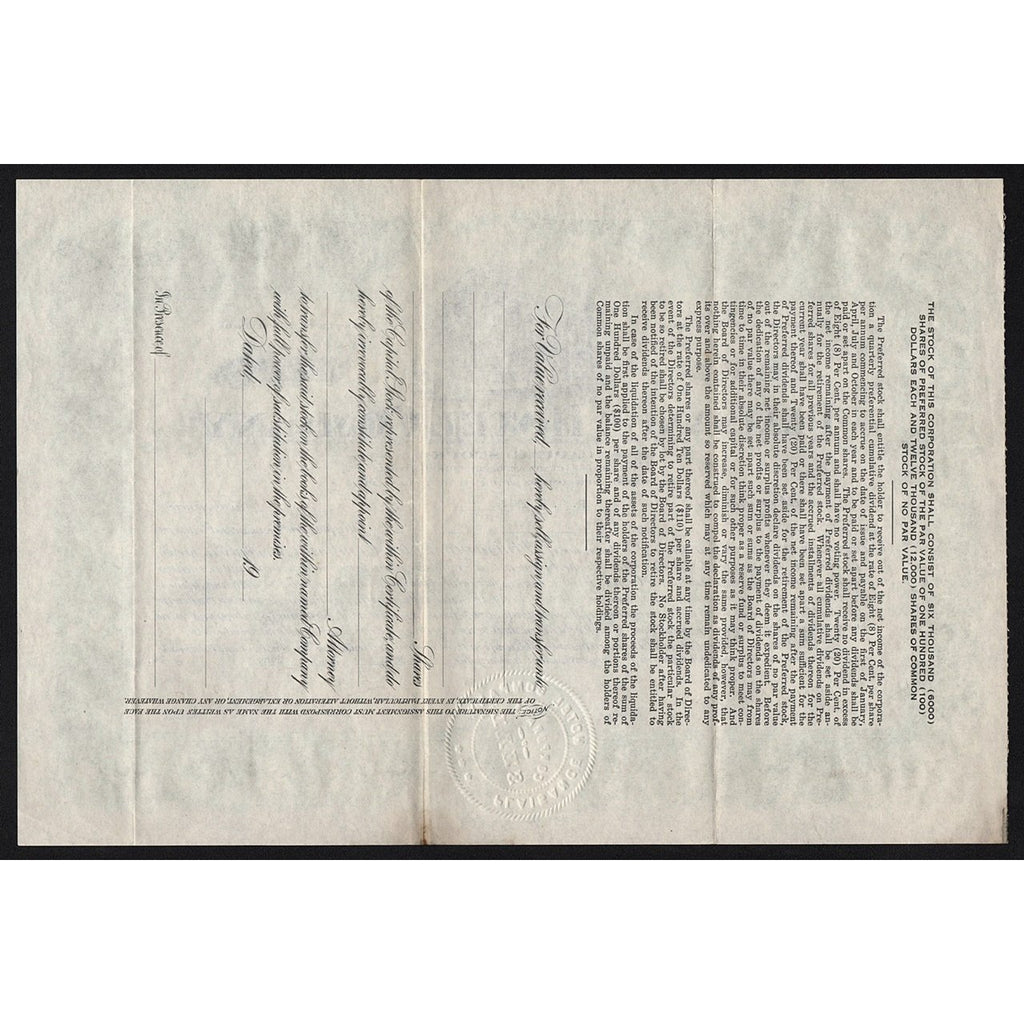 THE STOCK OF THIS CORPORATION SHALL CONSIST OF SIX THOUSAND (6000)
SHARES OF PREFERRED STOCK OF THE PAR VALUE OF ONE HUNDRED (100)
DOLLARS EACH AND TWELVE THOUSAND (12,000) SHARES OF COMMON
STOCK OF NO PAR VALUE.
The Preferred stock shall entitle the holder to receive out of the net income of the corpora-
tion a quarterly preferential cumulative dividend at the rate of Eight (8) Per Cent. per share
per annum commencing to accrue on the date of issue and payable on the first of January,
April, July and October in each year and to be paid or set apart before any dividends shall be
paid or set apart on the Common shares. The Preferred stock shall receive no dividend in excess
of Eight (8) Per Cent. per annum and shall have no voting power. Twenty (20) Per Cent. of
the net income remaining after the payment of Preferred dividends shall be set aside an-
nually for the retirement of the Preferred stock. Whenever all cumulative dividends on Pre-
ferred shares for all previous years and the accrued installments of dividends thereon for the
current year shall have been paid or there shall have been set apart a sum sufficient for the
payment thereof and Twenty (20) Per Cent. of the net income remaining after the payment
of Preferred dividends shall have been set aside for the retirement of the Preferred stock,
the Directors may in their absolute discretion declare dividends on the shares of no par value
out of the remaining net income or surplus profits whenever they deem it expedient. Before
the dedication of any of the net profits or surplus to the payment of dividends on the shares
of no par value there may be set apart such sum or sums as the Board of Directors may from
time to time in their absolute discretion think proper as a reserve fund or surplus to meet con-
tingencies or for additional capital or for such other purposes as it may think proper. And
the Board of Directors may increase, diminish or vary the same provided, however, that
nothing herein contained shall be construed to compel the declaration as dividends of any prof-
its over and above the amount so reserved which may at any time remain undedicated to any
express purpose.
The Preferred shares or any part thereof shall be callable at any time by the Board of Direc-
tors at the rate of One Hundred Ten Dollars ($110) per share and accrued dividends. In the
event of the Directors determining to retire part of the Preferred stock the particular stock
to be so retired shall be chosen by lot by the Board of Directors. No Stockholder after having
been notified of the intention of the Board of Directors to retire the stock shall be entitled to
receive dividends thereon after the date of such notification.
In case of the liquidation of all of the assets of the corporation the proceeds of the liquida-
tion shall be first applied to the payment of the holders of the Preferred shares of the sum of
One Hundred Dollars ($100) per share and of any dividends thereon or portions thereof re-
maining unpaid and the balance remaining thereafter shall be divided among the holders of
Common shares of no par value in proportion to their respective holdings.
For Value received, hereby sell, assign and transfer unto
Shares
of the Capital Stock represented by the within Certificate, and do
hereby irrevocably constitute and appoint
Attorney
to transfer the said stock on the books of the within named Company
with full power of substitution in the premises.
Dated, 19
In Presence of
NOTICE: THE SIGNATURE TO THIS ASSIGNMENT MUST CORRESPOND WITH THE NAME AS WRITTEN UPON THE FACE
OF THE CERTIFICATE, IN EVERY PARTICULAR, WITHOUT ALTERATION OR ENLARGEMENT, OR ANY CHANGE WHATEVER.